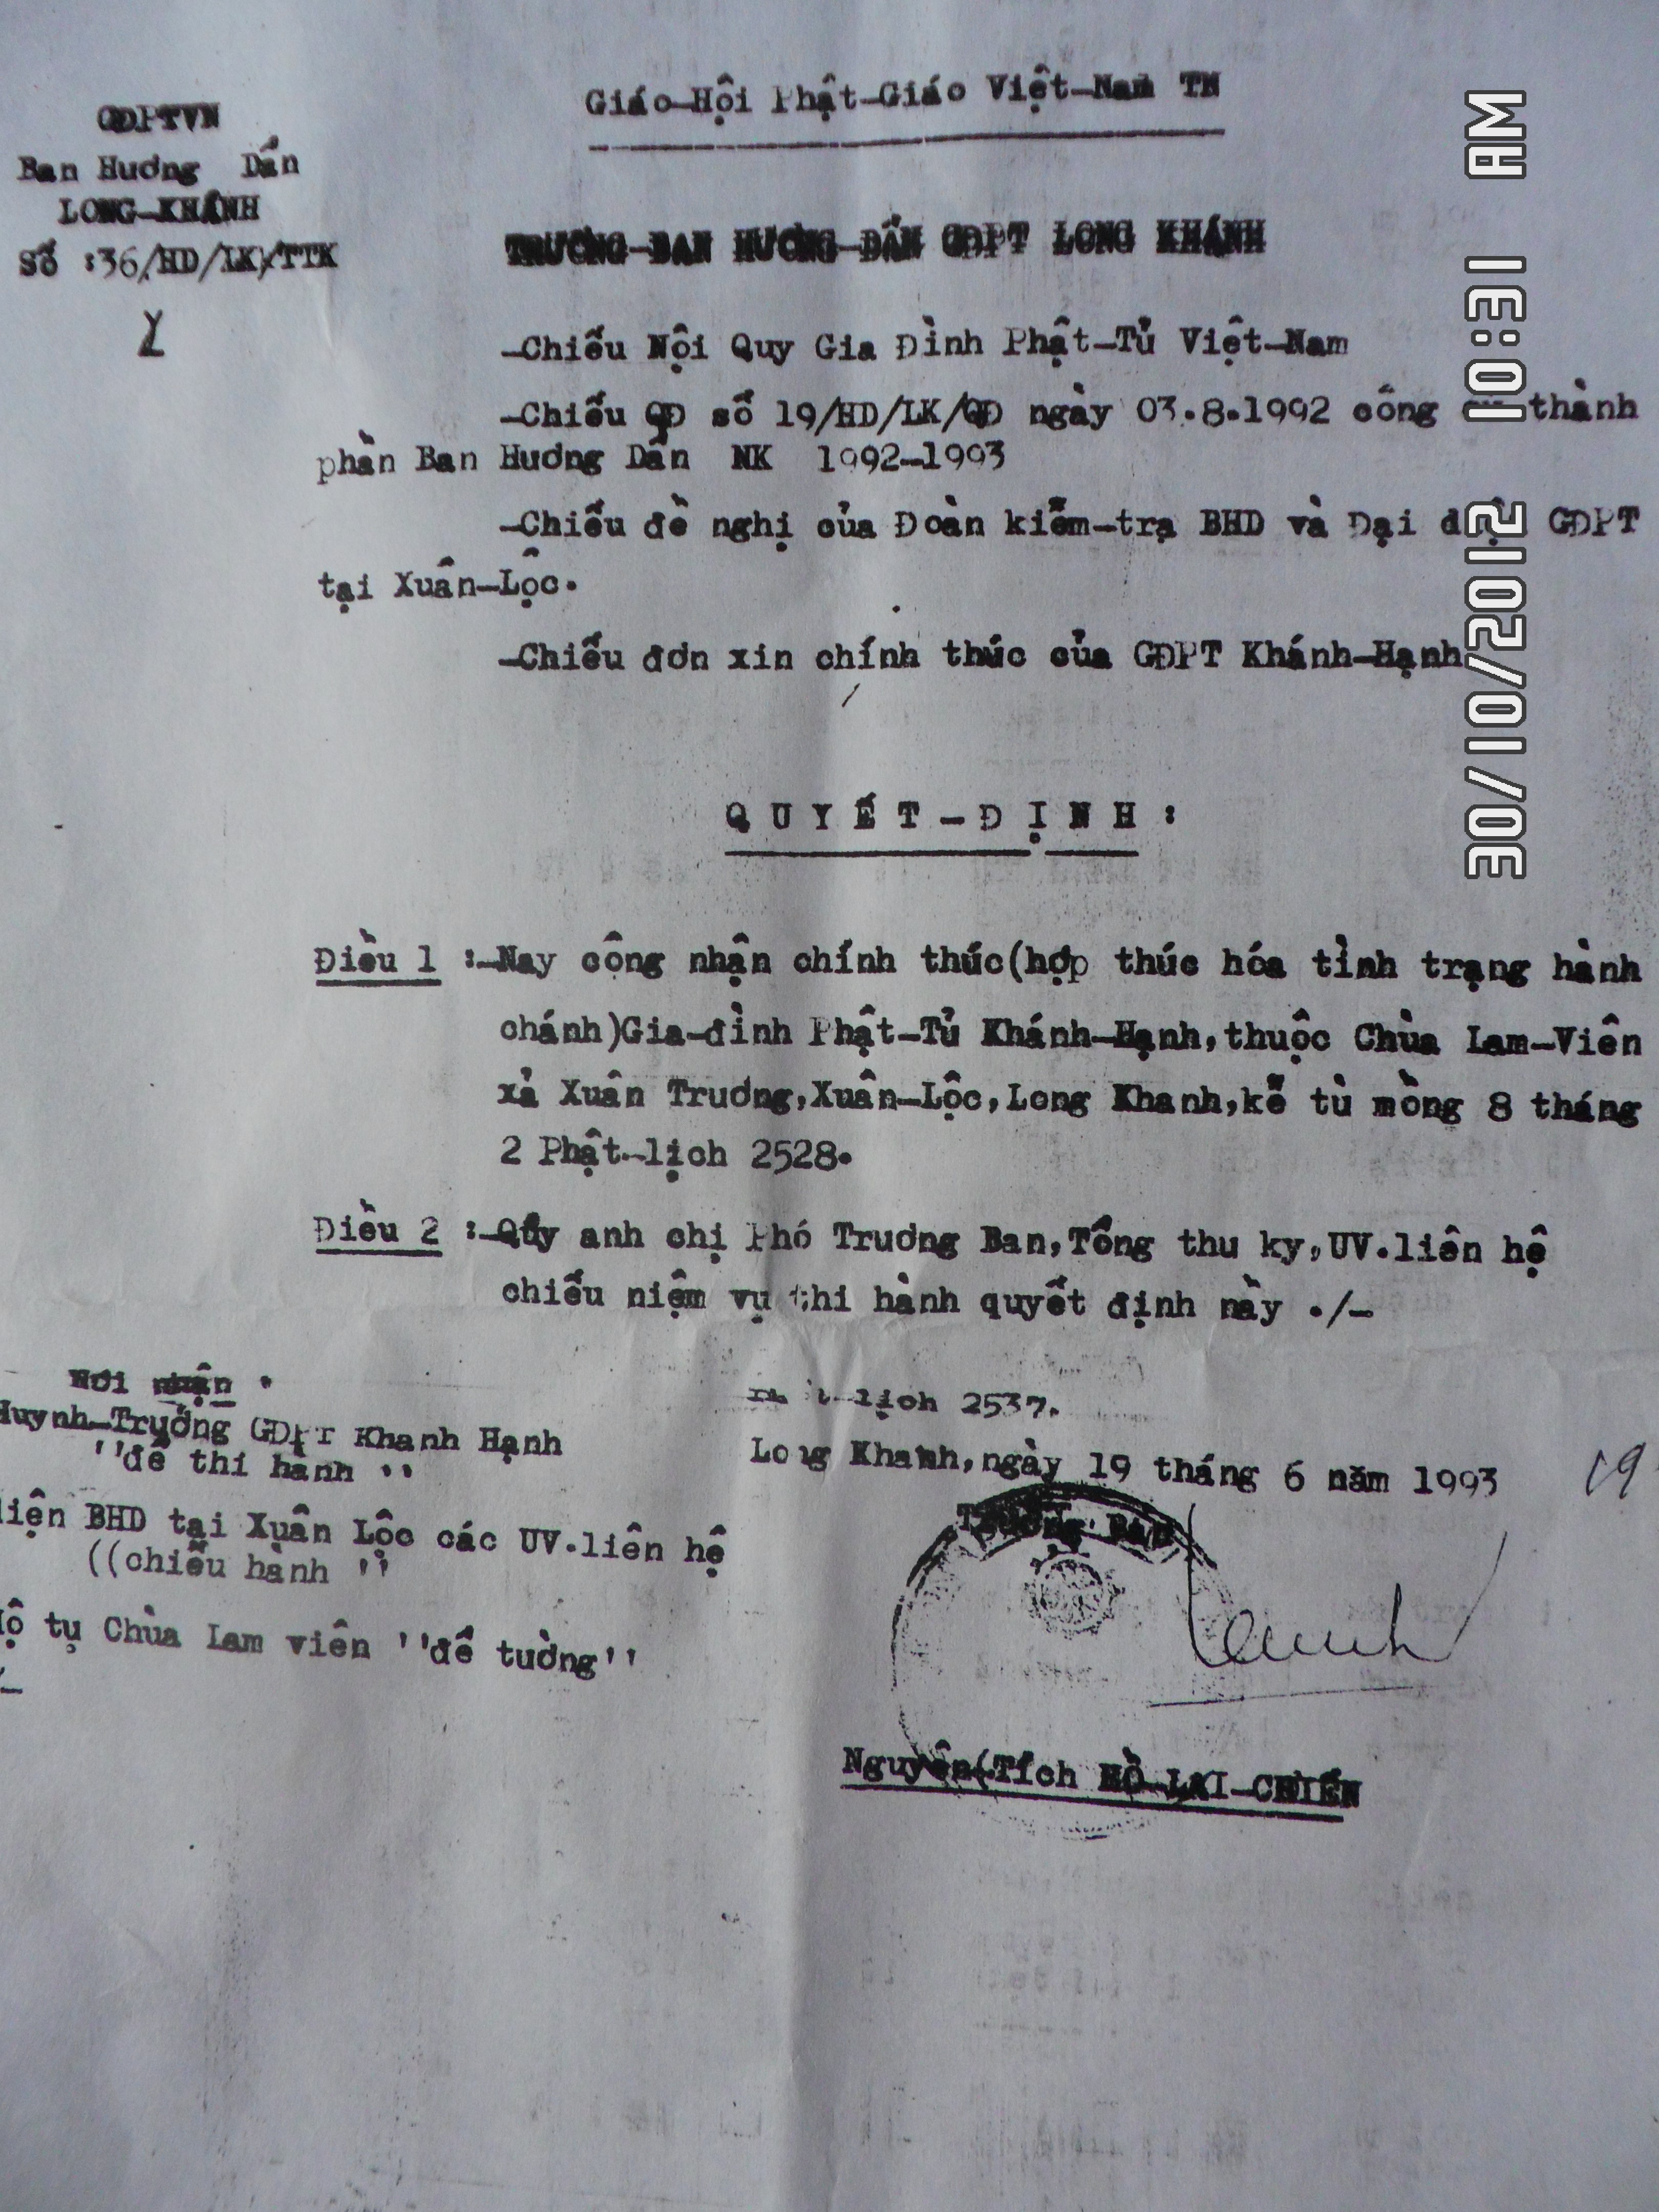 Giáo-Hội Phật-Giáo Việt-Nam TN
GĐPTVN
Ban Hương Dẩn
LONG-KHÁNH
Số :36/HD/LK/TTK
TRƯƠNG-BAN HƯƠNG-DẨN GĐPT LONG KHÁNH
-Chiếu Nội Quy Gia Đình Phật-Tử Việt-Nam
-Chiếu QĐ số 19/HD/LK/QĐ ngày 03.8.1992 công thành
phần Ban Hương Dẩn NK 1992-1993
-Chiếu đề nghị của Đoàn kiểm-trạ BHD và Đại GĐPT
tại Xuân-Lộc.
-Chiếu đơn xin chính thức của GĐPT Khánh-Hạnh
QUYẾT-ĐỊNH :
Điều 1 :-Nay công nhận chính thức(hợp thức hóa tình trạng hành
chánh)Gia-đình Phật-Tử Khánh-Hạnh,thuộc Chùa Lam-Viên
xả Xuân Trương,Xuân-Lộc,Long Khanh,kể từ mồng 8 tháng
2 Phật-lịch 2528.
Điều 2 :-Qúy anh chị Phó Trương Ban,Tổng thu ky,UV.liên hệ
chiếu niệm vụ thi hành quyết định nầy ./-
Nơi nhận
Huynh-Trưởng GĐPT Khanh Hạnh
''để thi hành ''
BHD tại Xuân Lộc các UV.liên hệ
((chiếu hành ''
tự Chùa Lam viên ''để tường''
lịch 2537.
Long Khanh,ngày 19 tháng 6 năm 1993
19
TRƯƠNG BAN
Nguyên(Tích HỒ-LAI-CHIẾN
30/10/2012 10:31 AM